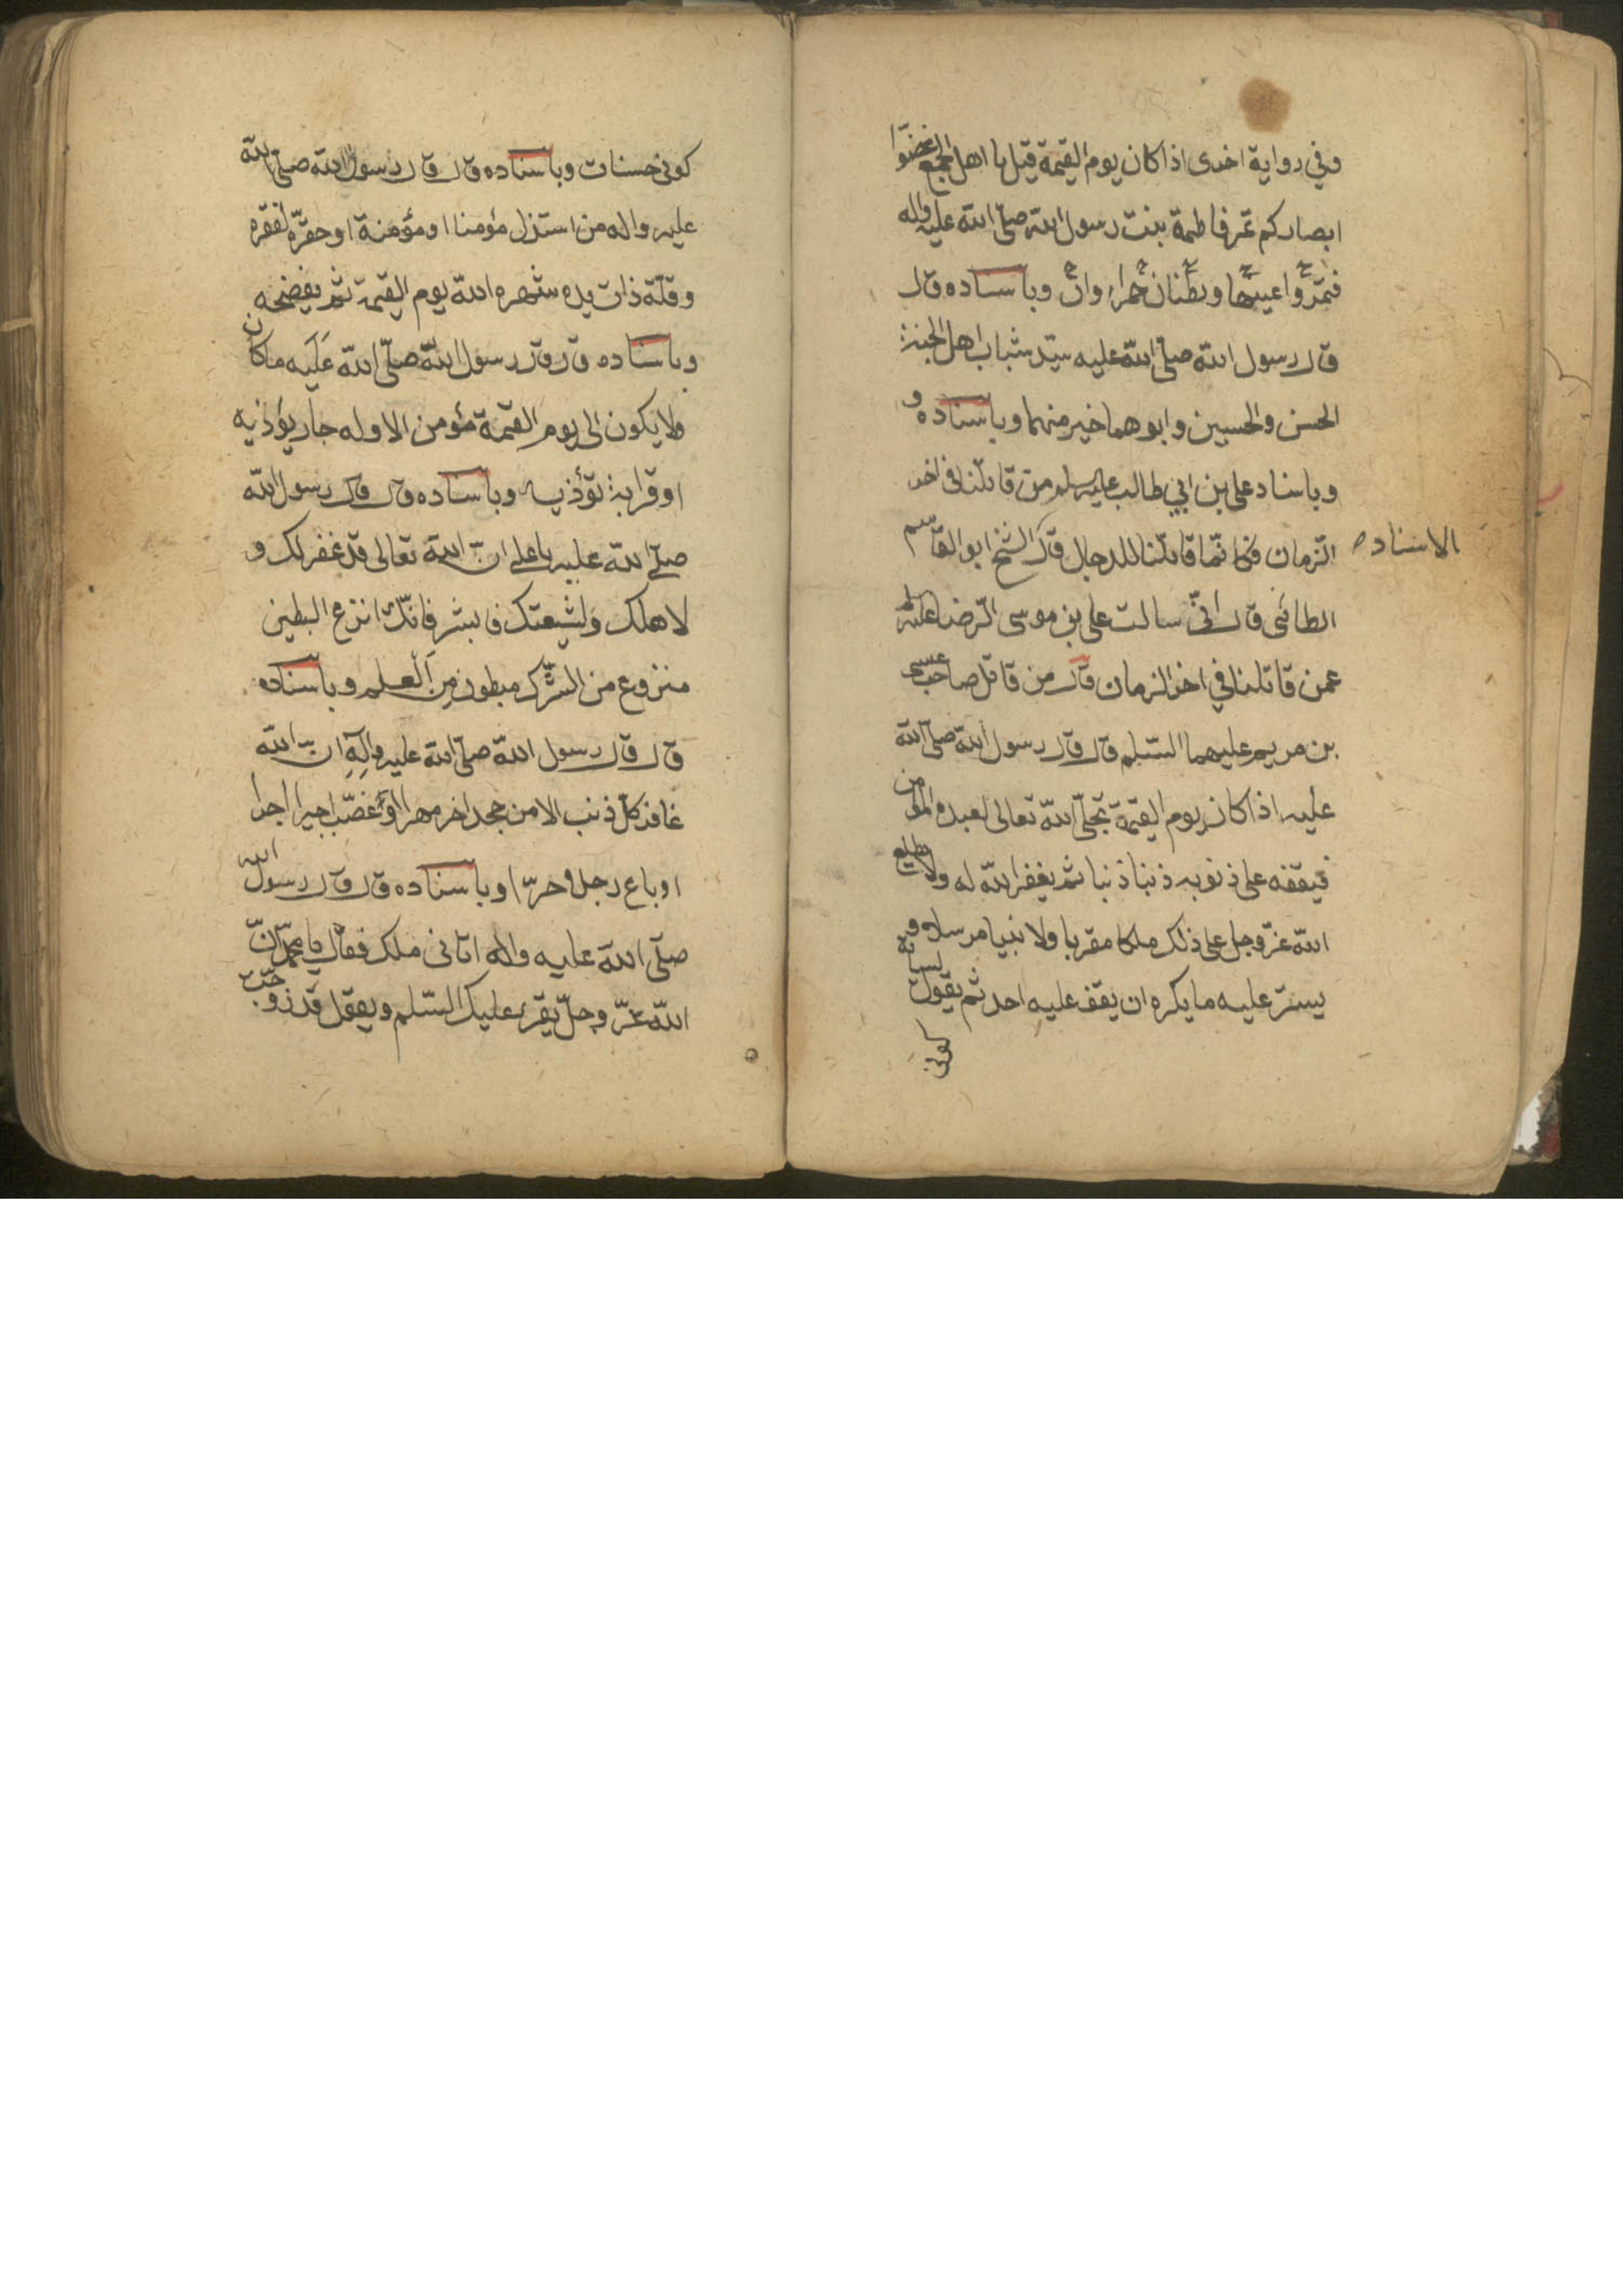 وفي رواية اخرى اذا كان يوم القيمة قيل يا اهل الجمع غضوا
ابصاركم تمر فاطمة بنت رسول الله صلى الله عليه واله
فتمر و وبا سناده قال
قال رسول الله صلى الله عليه سيد شباب اهل الجنة
الحسن والحسين وابوهما خير منهما وباسناده و
وباسناد على بن ابي طالب عليه سلم من قاتلنا في اخر
الزمان فكانما قاتلنا للدجال قال الشيخ ابو القاسم
الاسناده
الطائى قال انى سالت على بن موسى الرضا عليه
عمن قاتلنا في اخر الزمان قال من قاتل صاحب عيسى
بن مريم عليهما السلم قال قال رسول الله صلى الله
عليه اذا كان يوم القيمة تجلى الله تعالى لعبده المؤمن
فيقفه على ذنوبه ذنبا ذنبا ثم يغفر الله له ولا يطلع
الله عز وجل على ذلك ملكا مقربا ولا نبيا مرسلا و
يستر عليه ما يكره ان يقف عليه احد ثم يقول لسياته
كونى
كونى حسنات وباسناده قال قال رسول الله صلى الله
عليه واله من استذل مؤمنا او مؤمنة او حقره لفقره
وقلة ذات يده شهره الله يوم القيمة ثم يفضحه
وباسناده قال قال رسول الله صلى الله عليه ما كان
ولا يكون الى يوم القيمة مؤمن الا وله جار يؤذيه
او قرابة تؤذيه وباسناده قال قال رسول الله
صلى الله عليه يا على ان الله تعالى قد غفر لك و
لاهلك ولشيعتك فابشر فانك انزع البطين
منزوع من الشرك مبطون من العلم وباسناده
قال قال رسول الله صلى الله عليه واله ان الله
غافر كل ذنب الا من جحد اخر مهرا او غصب اجيرا اجرا
او باع رجلا حرا وباسناده قال قال رسول الله
صلى الله عليه واله اتانى ملك فقال يا محمد ان
الله عز وجل يقرئ عليك السلم ويقول قد زوجت